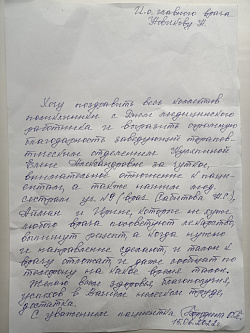 И.о. главного врача
Новикову Н.
Хочу поздравить весь коллектив
поликлиники с Днём медицинского
работника и выразить огромную
благодарность заведующей терапев-
тическим отделением
Елене Александровне за чуткое,
внимательное отношение к паци-
ентам, а также нашим мед.
сестрам уч. №9 (врач Н.С.),
и Ирине, которые не хуже
любого врача посоветуют лекарство,
выпишут рецепт, а когда нужно
и направление сделают, и талон к
врачу отложат и даже сообщат по
телефону на какое время талон.
Желаю вам здоровья, благополучия,
успехов в Вашем нелегком труде,
достатка.
С уважением пациентка